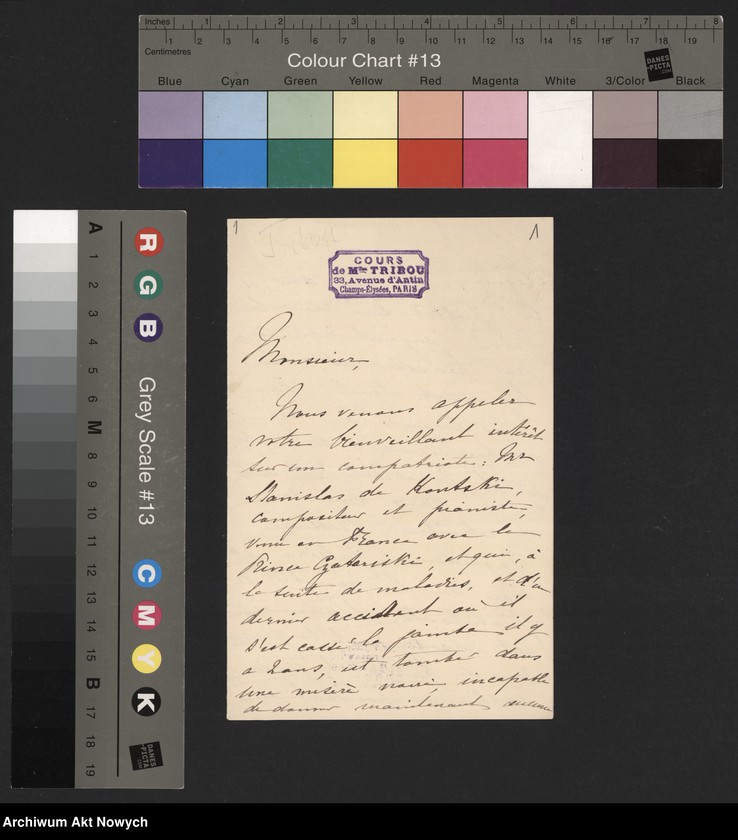 Inches 1 2 3 4 5 6 7 8
Centimetres 1 2 3 4 5 6 7 8 9 10 11 12 13 14 15 16 17 18 19
Colour Chart #13
DANES
-PICTA
.COM
Blue Cyan Green Yellow Red Magenta White 3/Color Black
A 1 2 3 4 5 6 M 8 9 10 11 12 13 14 15 B 17 18 19
R G B
Grey Scale #13
C M Y K
DANES
-PICTA
.COM
1
1
COURS
de Mlle TRIBOU
33, Avenue d'Antin
Champs-Élysées, PARIS
Monsieur,
Nous venons appeler
votre bienveillant intérêt
sur un compatriote: Mr
Stanislas de Kontski,
compositeur et pianiste,
venu en France avec le
Prince Czatoriski, et qui, à
la suite de maladies, et d'un
dernier accident où il
s'est cassé la jambe il y
a 2 ans, est tombé dans
une misère noire, incapable
de donner maintenant aucune
Archiwum Akt Nowych